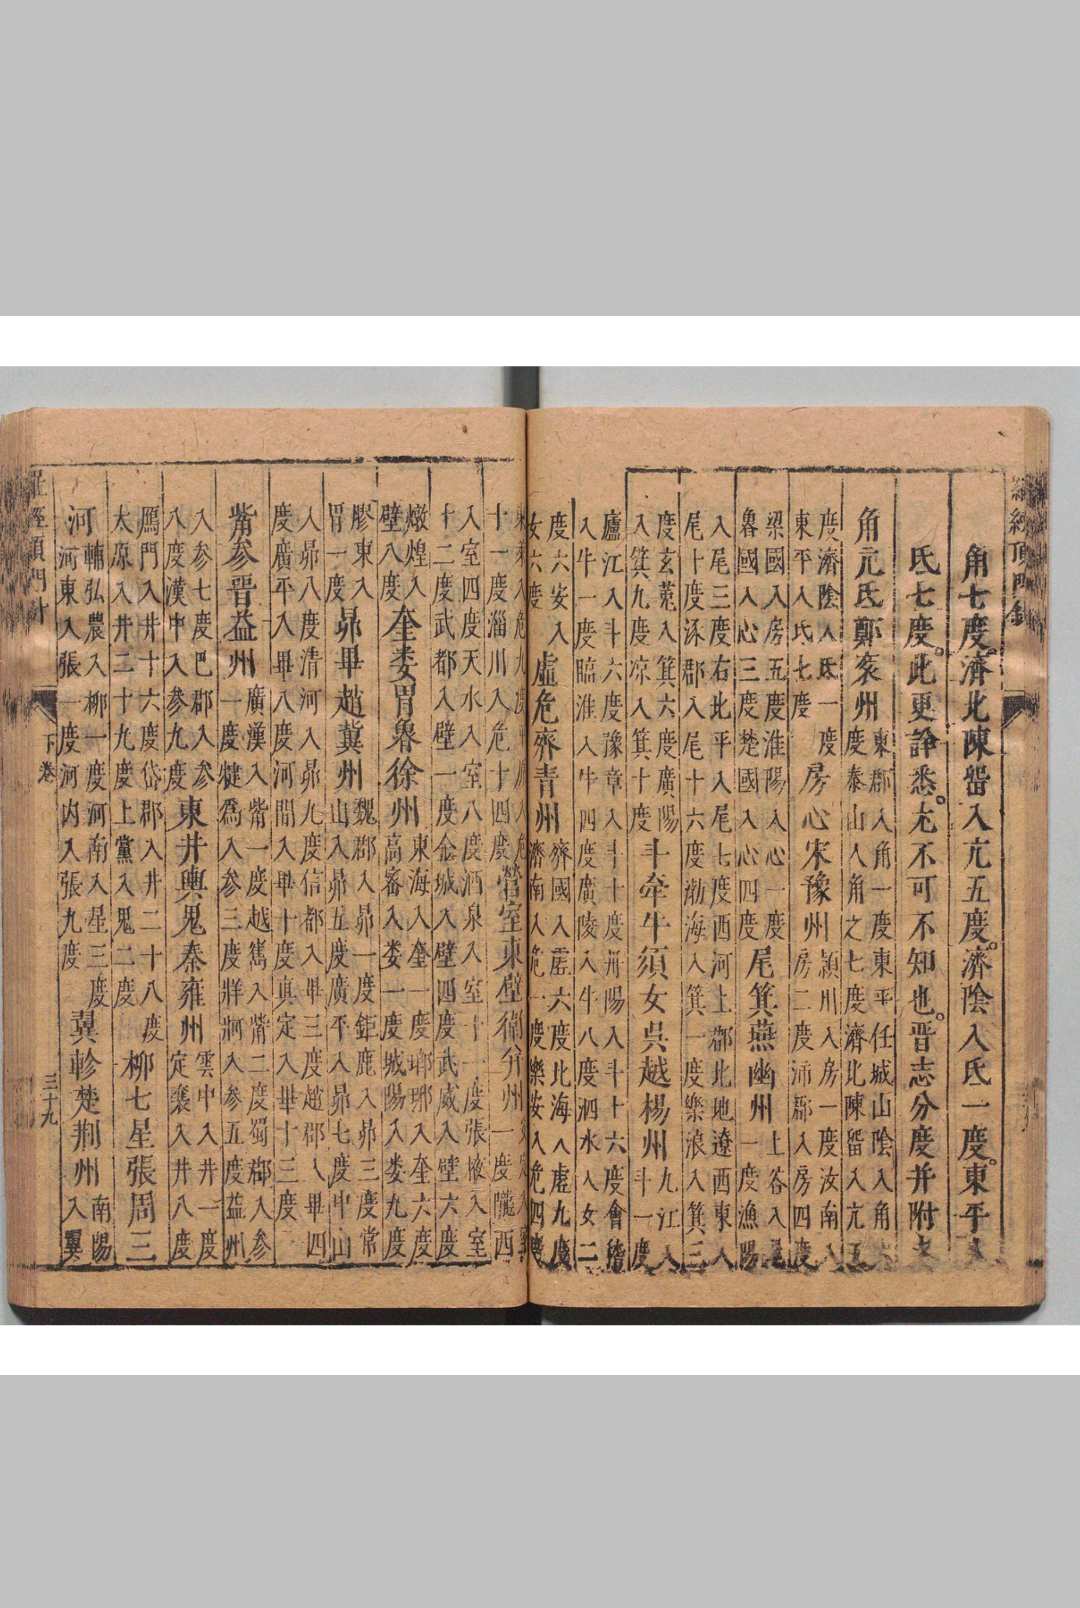 角七度。濟北陳留入亢五度。濟陰入氐一度。東平入
氐七度。此更詳悉。尤不可不知也。晋志分度并附
角亢氐鄭兖州東郡入角一度東平任城山陰入角
度泰山入角之七度濟北陳留入亢五
度濟陰入氐一度
東平入氐七度
房心宋豫州潁川入房一度汝南入
房二度沛郡入房四度
梁國入房五度淮陽入心一度
魯國入心三度楚國入心四度
尾箕燕幽州上谷入尾
一度漁陽
入尾三度右北平入尾七度西河上郡北地遼西東入
尾十度涿郡入尾十六度渤海入箕一度樂浪入箕三
度玄菟入箕六度廣陽
入箕九度凉入箕十度
斗牽牛須女吳越楊州九江入
斗一度
廬江入斗六度豫章入斗十度丹陽入斗十六度會稽
入牛一度臨淮入牛四度廣陵入牛八度泗水入女二
度六安入
女六度
虛危齊青州齊國入虛六度北海入虛九度
濟南入危一度樂安入危四度
十一度淄川入危十四度
營室東壁衛并州
一度隴西
入室四度天水入室八度酒泉入室十一度張掖入室
十二度武都入壁一度金城入壁四度武威入壁六度
燉煌入
壁八度
奎婁胃魯徐州東海入奎一度瑯琊入奎六度
高密入婁一度城陽入婁九度
膠東入
胃一度
昴畢趙冀州魏郡入昴一度鉅鹿入昴三度常
山入昴五度廣平入昴七度中山
入昴八度清河入昴九度信都入畢三度趙郡入畢四
度廣平入畢八度河間入畢十度真定入畢十三度
觜参晋益州廣漢入觜一度越嶲入觜二度蜀郡入参
一度犍爲入参三度牂牁入参五度益州
入参七度巴郡入参
八度漢中入参九度
東井輿鬼秦雍州雲中入井一度
定襄入井八度
鴈門入井十六度岱郡入井二十八度
太原入井二十九度上黨入鬼二度
柳七星張周三
河
輔弘農入柳一度河南入星三度
河東入張一度河内入張九度
翼軫楚荆州南陽
入翼
下卷
三十九